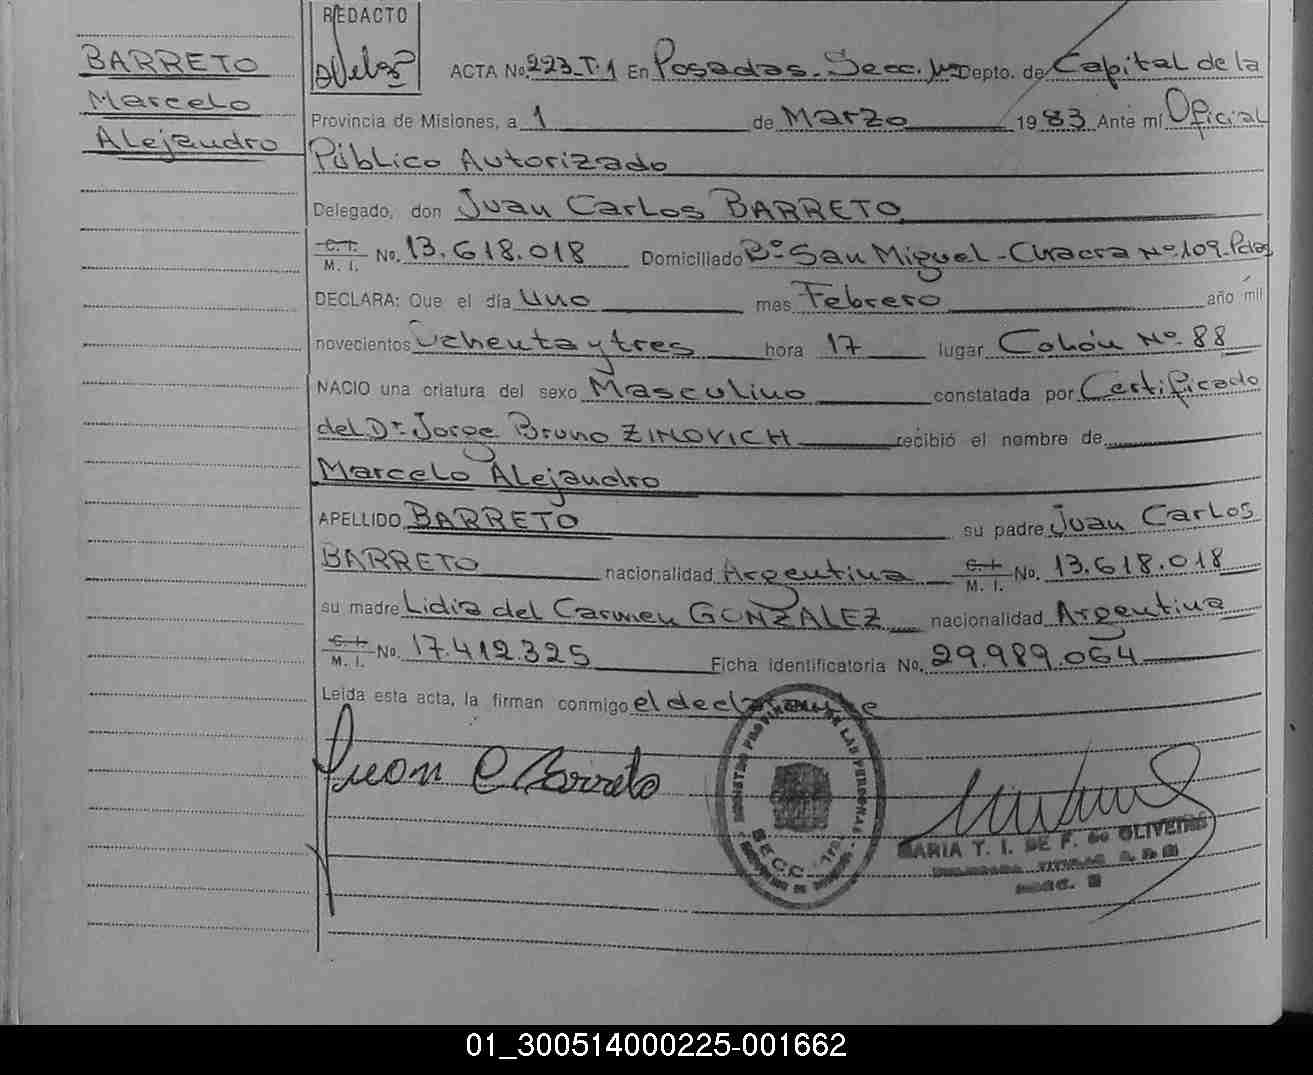 BARRETO
Marcelo
Alejandro
REDACTO
ACTA No. 223_T.1 En Posadas. Secc. Depto. de Capital de la
Provincia de Misiones, a 1 de Marzo 1983 Ante mí Oficial
Público Autorizado
Delegado, don Juan Carlos BARRETO
C. I. M. I. No. 13.618.018 Domiciliado Bº San Miguel-Chacra Nº 109-Pdas
DECLARA: Que el día Uno mes Febrero año mil
novecientos Ochenta y tres hora 17 lugar Colón Nº 88
NACIO una criatura del sexo Masculino constatada por Certificado
del Dr. Jorge Bruno ZIMOVICH recibió el nombre de
Marcelo Alejandro
APELLIDO BARRETO su padre Juan Carlos
BARRETO nacionalidad Argentina C. I. M. I. No. 13.618.018
su madre Lidia del Carmen GONZALEZ nacionalidad Argentina
C. I. M. I. No. 17.412.325 Ficha identificatoria No. 29.989.064
Leída esta acta, la firman conmigo el declarante
Juan C Barreto
REGISTRO PROVINCIAL DE LAS PERSONAS
SECC.
MARIA T. I. DE F. de OLIVEIRA
SECC.
01_300514000225-001662